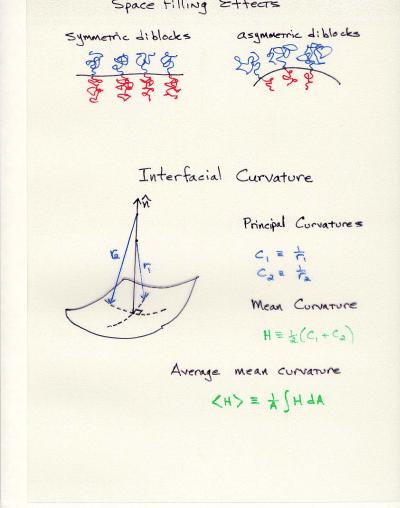 Space Filling Effects
Symmetric diblocks
asymmetric diblocks
Interfacial Curvature
n̂
r₂
r₁
Principal Curvatures
C₁ ≡ 1/r₁
C₂ ≡ 1/r₂
Mean Curvature
H ≡ ½(C₁ + C₂)
Average mean curvature
<H> ≡ 1/A ∫ H dA